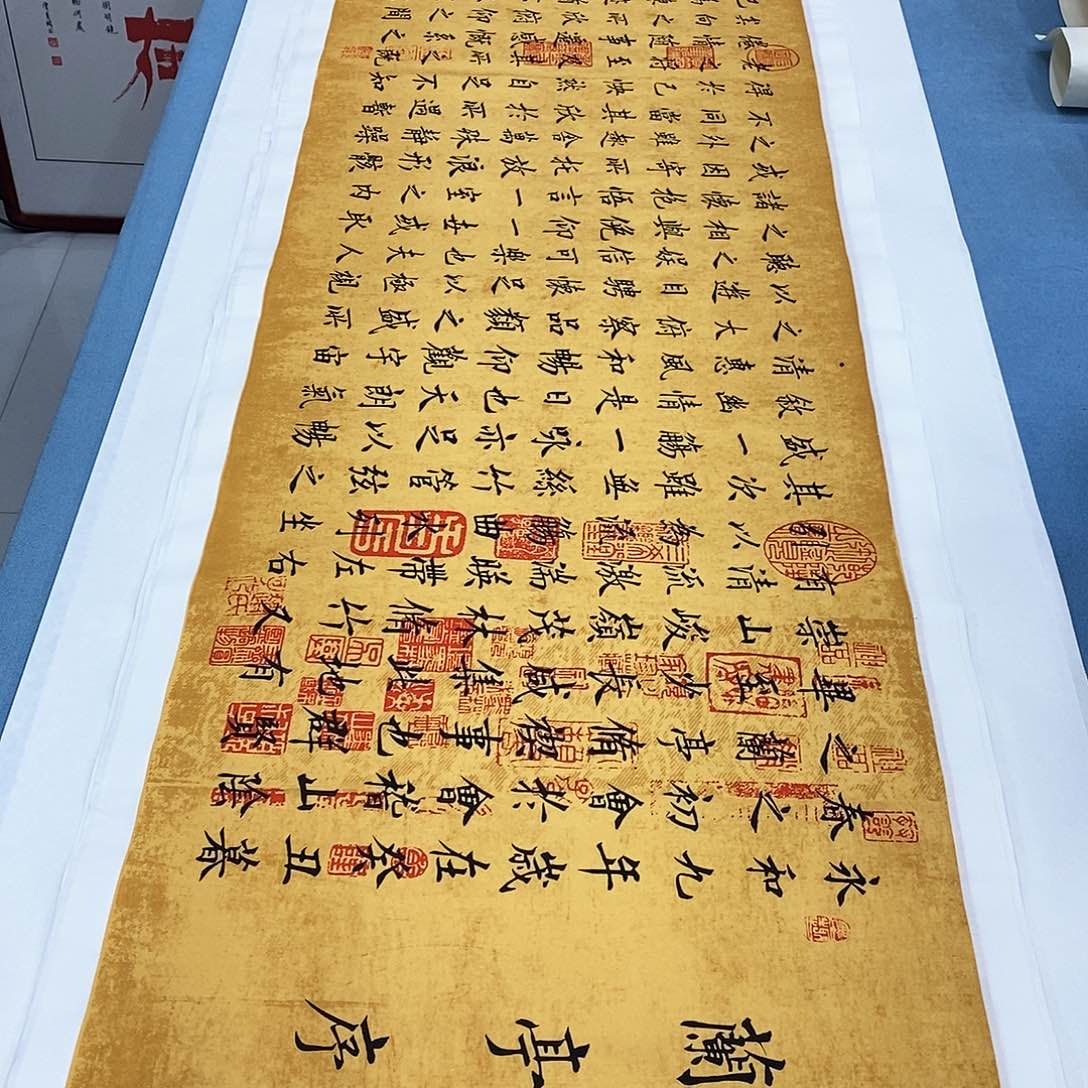 蘭亭序
永和九年歲在癸丑暮
春之初會於會稽山陰
之蘭亭脩禊事也群賢
畢至少長咸集此地有
崇山峻嶺茂林脩竹又
有清流激湍暎帶左右
引以為流觴曲水列坐
其次雖無絲竹管弦之
盛一觴一詠亦足以暢
敘幽情是日也天朗氣
清惠風和暢仰觀宇宙
之大俯察品類之盛所
以遊目騁懷足以極視
聽之娛信可樂也夫人
之相與俛仰一世或取
諸懷抱悟言一室之內
或因寄所托放浪形骸
之外雖趣舍萬殊靜躁
不同當其欣於所遇暫
得於己快然自足不知
老之將至及其所之既
惓情隨事遷感慨係之
矣向之所欣俛仰之間